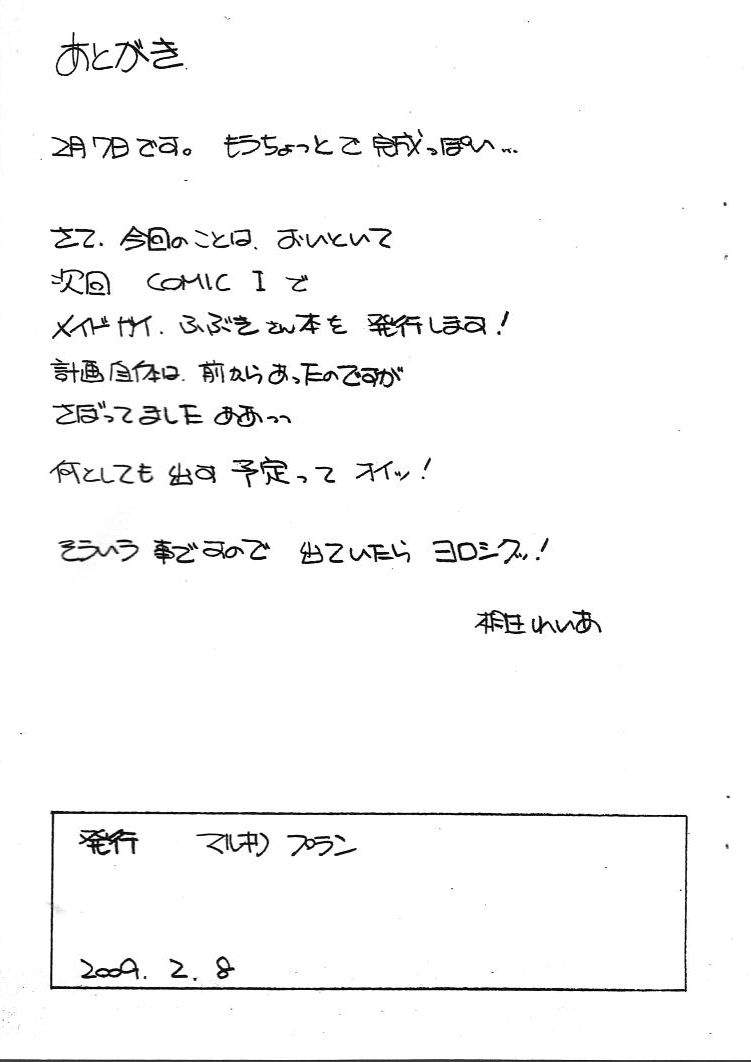 あとがき
2月7日です。 もうちょっとで 完成っぽい...
さて、今回のことは、おいといて
次回 COMIC I で
メイドガイ、ふぶきさん本を 発行します!
計画自体は、前からあったのですが
さぼってました ああっっ
何としても 出す 予定って オイッ!
そういう 事ですので 出ていたら ヨロシクッ!
れいあ
発行 マルキ プラン
2009. 2. 8